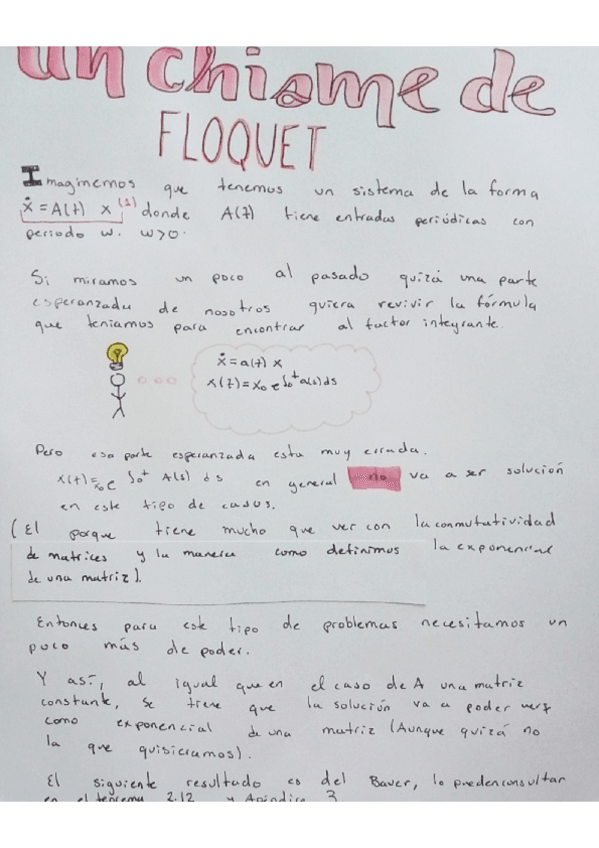 un chisme de
FLOQUET
Imaginemos que tenemos un sistema de la forma
ẋ = A(t) x (1) donde A(t) tiene entradas periódicas con
periodo w. w>0.
Si miramos un poco al pasado quizá una parte
esperanzada de nosotros quiera revivir la fórmula
que teniamos para encontrar al factor integrante.
ẋ = a(t) x
x(t) = x₀ e ∫₀ᵗ a(s) ds
Pero esa parte esperanzada esta muy errada.
x(t) = x₀ e ∫₀ᵗ A(s) ds en general no va a ser solución
en este tipo de casos.
(El porque tiene mucho que ver con la conmutatividad
de matrices y la manera como definimos la exponencial
de una matriz).
Entonces para este tipo de problemas necesitamos un
poco más de poder.
Y así, al igual que en el caso de A una matriz
constante, se tiene que la solución va a poder verse
como exponencial de una matriz (Aunque quizá no
la que quisieramos).
El siguiente resultado es del Baver, lo pueden consultar
en el teorema 2.12 y Apindice 3